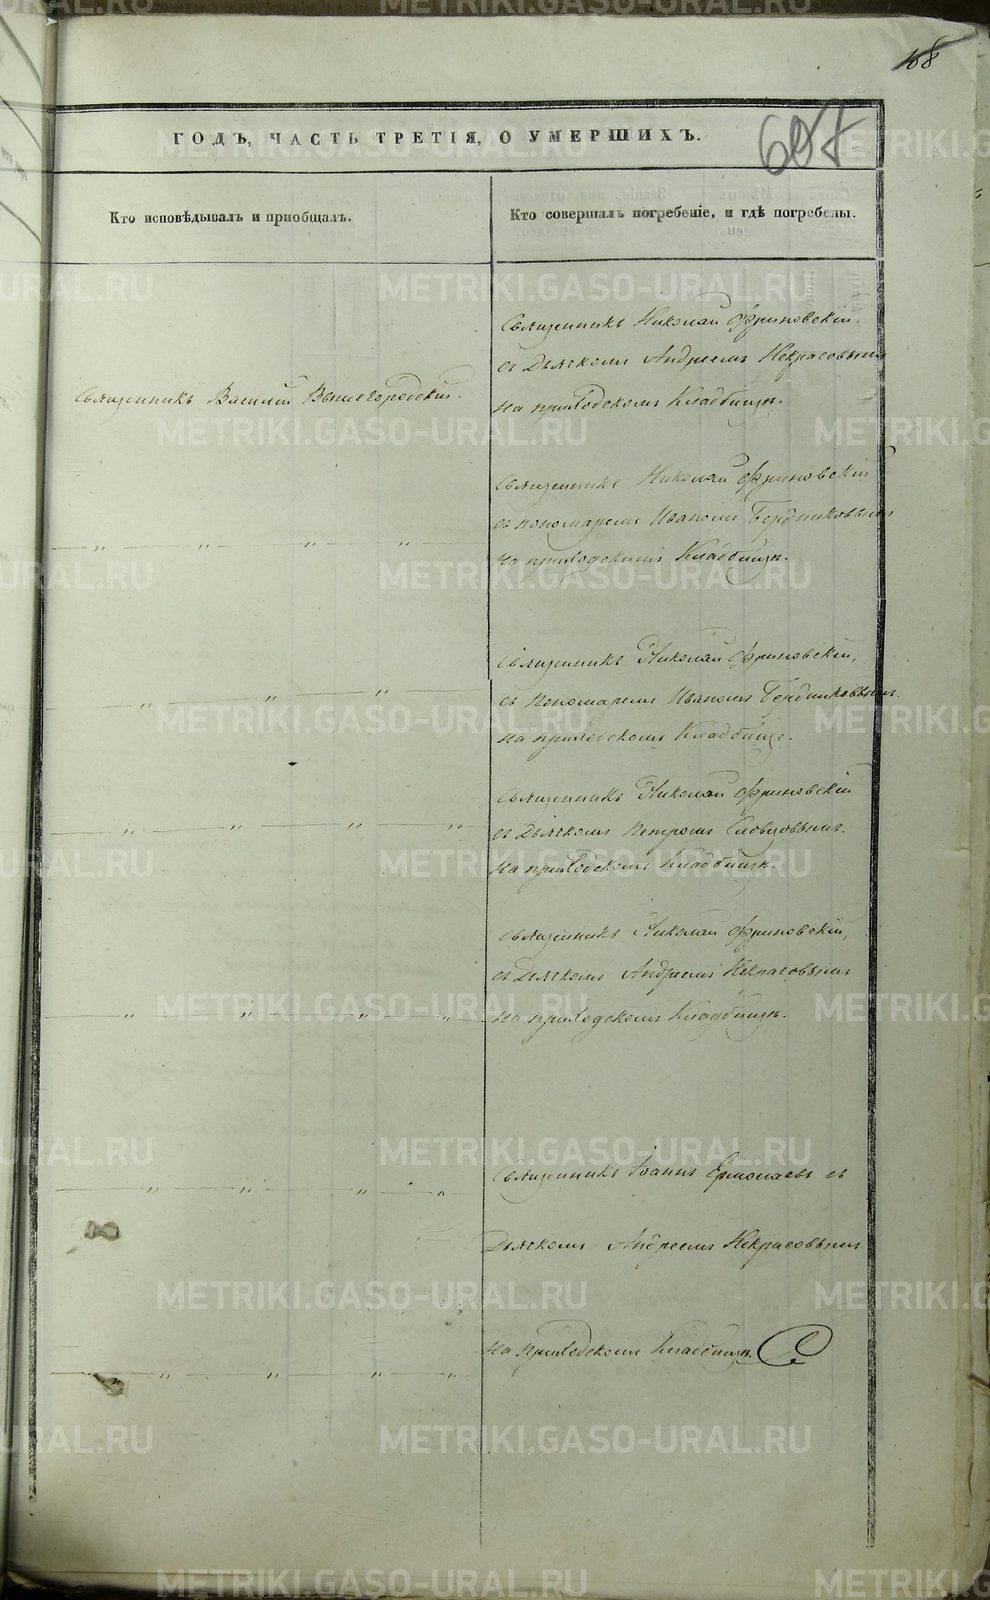 168
607
ГОДЪ, ЧАСТЬ ТРЕТІЯ, О УМЕРШИХЪ.
Кто исповѣдывалъ и пріобщалъ.
Кто совершалъ погребеніе, и гдѣ погребены.
Священникъ Василій Вышегородскій.
Священникъ Николай Фриновскій.
съ Дьячкомъ Андреемъ Некрасовымъ
на приходскомъ Кладбищѣ.
Священникъ Николай Фриновскій
съ пономаремъ Иваномъ Бердниковымъ
на приходскомъ Кладбищѣ.
— „ — „ — „ — „
Священникъ Николай Фриновскій,
съ пономаремъ Иваномъ Бердниковымъ.
на приходскомъ Кладбище.
— „ — „ — „
Священникъ Николай Фриновскій
съ Дьячкомъ Петромъ Словцовымъ.
на приходскомъ Кладбищѣ.
— „ — „ — „ — „
Священникъ Николай Фриновскій,
съ Дьячкомъ Андреемъ Некрасовымъ
на приходскомъ Кладбищѣ.
— „ — „ — „ — „
Священникъ Іоаннъ Ермолаевъ съ
— „ — „ — „ — „
Дьячкомъ Андреемъ Некрасовымъ
на приходскомъ Кладбищѣ.
— „ — „ — „ — „
METRIKI.GASO-URAL.RU